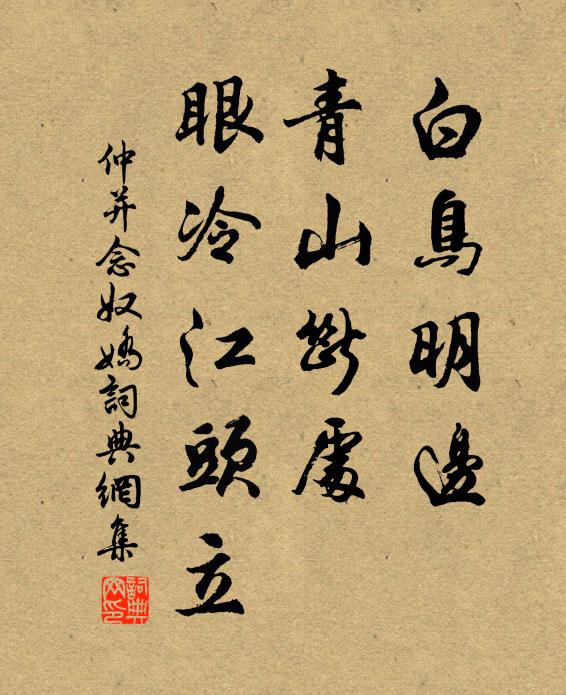 白鳥明邊
青山斷處
眼冷江頭立
仲并念奴嬌詞典網集
詞典網印